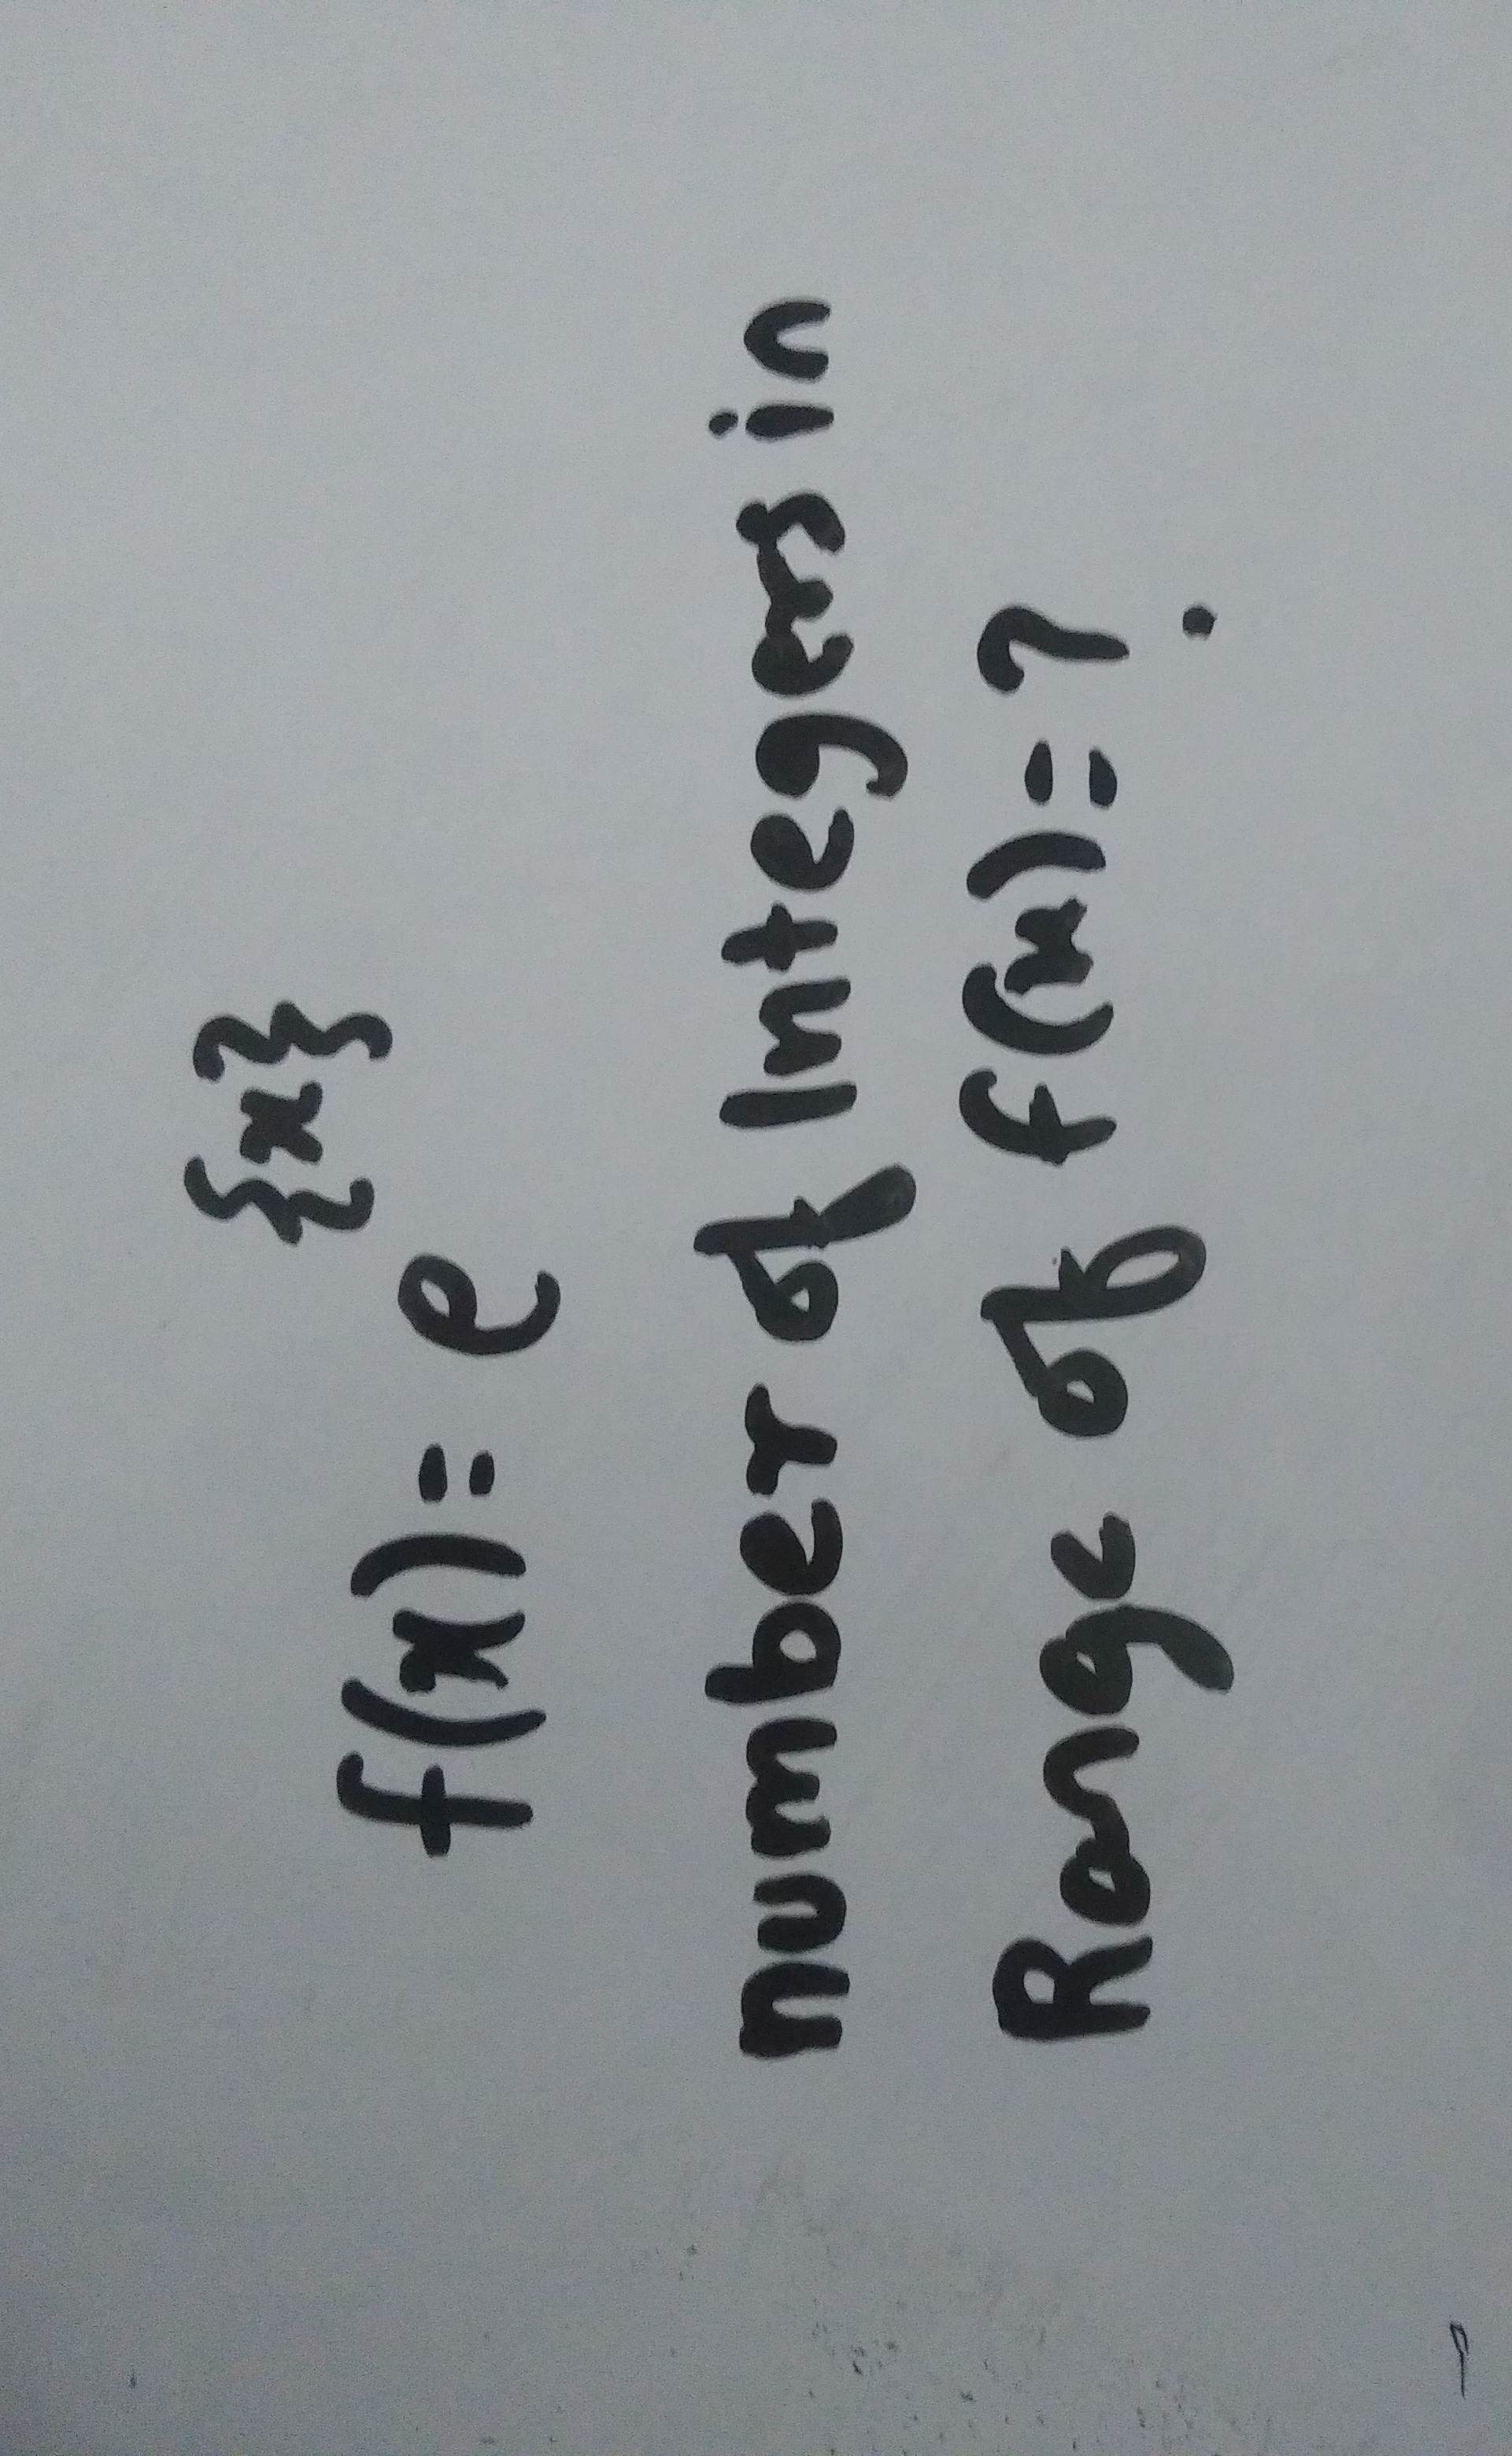 f(x) = e^{x}
number of Integers in
Range of f(x) = ?